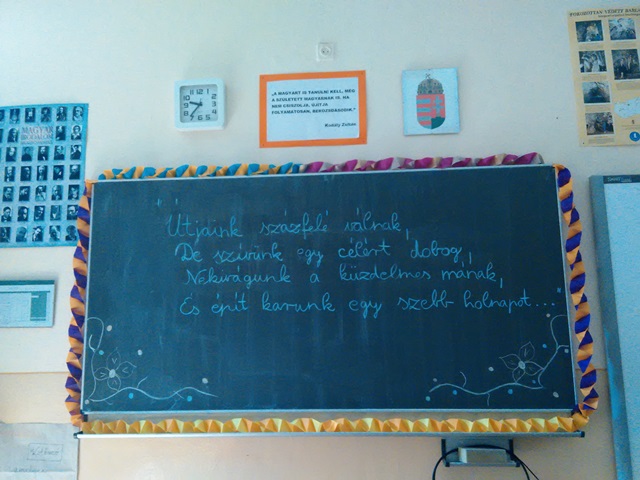 „A MAGYART IS TANULNI KELL, MÉG
A SZÜLETETT MAGYARNAK IS, HA
NEM CSISZOLJA, ÚJÍTJA
FOLYAMATOSAN, BEROZSDÁSODIK.”
Kodály Zoltán
MAGYAR
Útjaink százfelé válnak,
De szívünk egy célért dobog,
Nekivágunk a küzdelmes mának,
És épít karunk egy szebb holnapot...